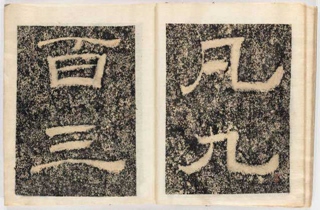 凡九
百三